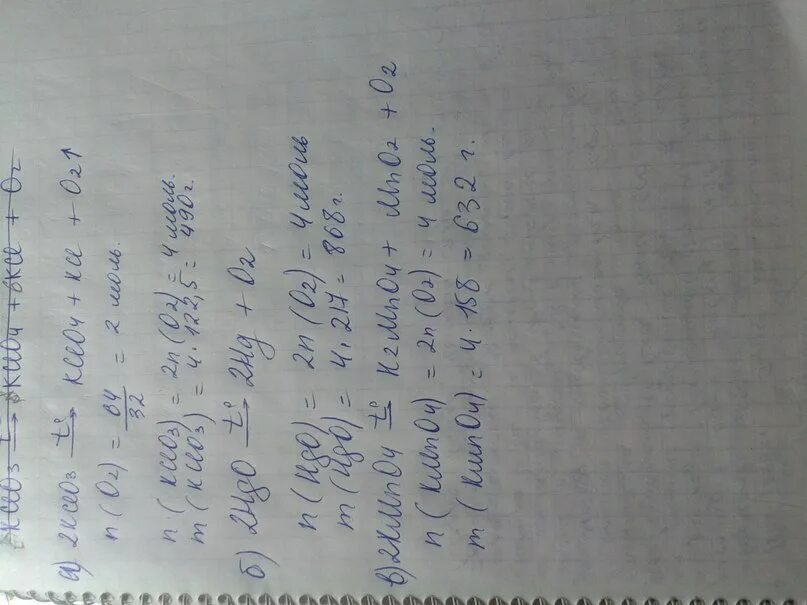 KClO3 t° KClO4 + KCl + O2
а) 2KClO3 t°→ KClO4 + KCl + O2↑
n(O2) = 64/32 = 2 моль.
n(KClO3) = 2n(O2) = 4 моль.
m(KClO3) = 4·122,5 = 490 г.
б) 2HgO t°→ 2Hg + O2
n(HgO) = 2n(O2) = 4 моль
m(HgO) = 4·217 = 868 г.
в) 2KMnO4 t°→ K2MnO4 + MnO2 + O2
n(KMnO4) = 2n(O2) = 4 моль.
m(KMnO4) = 4·158 = 632 г.